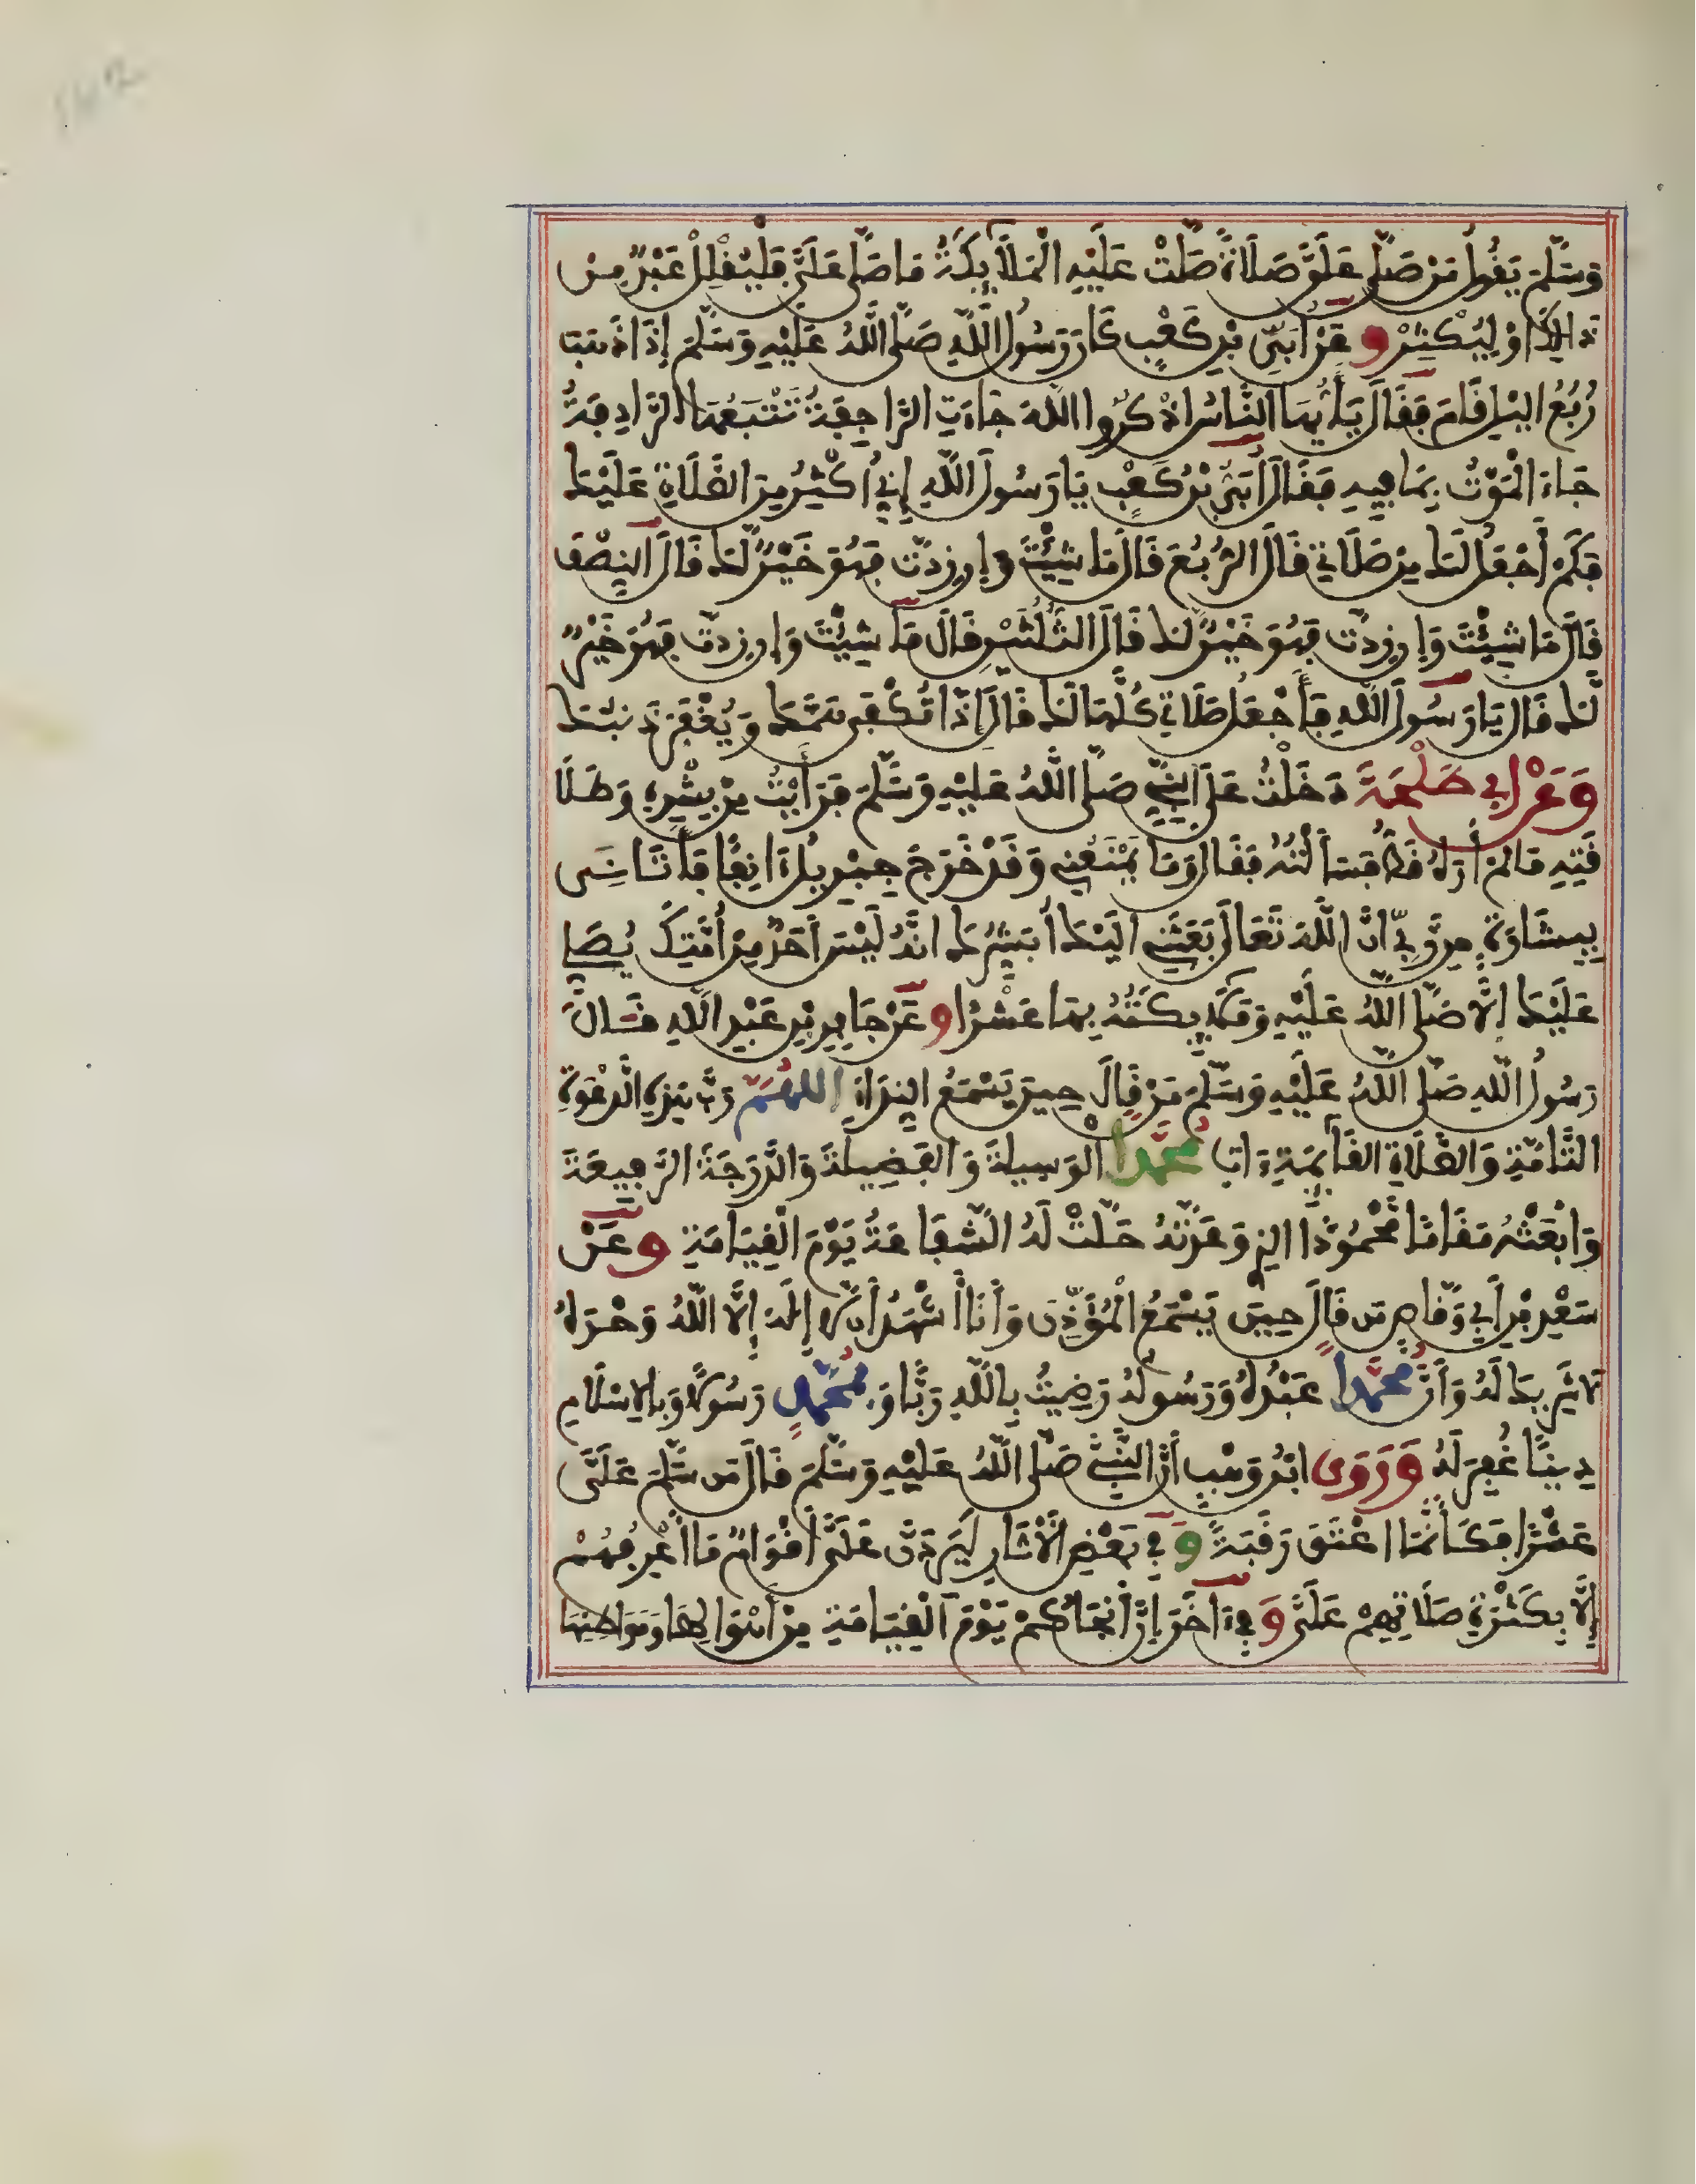 وَسَلَّمَ يَقُولُ مَنْ صَلَّى عَلَيَّ صَلَاةً صَلَّتْ عَلَيْهِ الْمَلَآئِكَةُ مَا صَلَّى عَلَيَّ فَلْيُقْلِلْ عَبْدٌ مِن
ذَالِكَ أَوْ لِيُكْثِرْ وَعَنْ أُبَيِّ بْنِ كَعْبٍ كَانَ رَسُولُ اللَّهِ صَلَّى اللَّهُ عَلَيْهِ وَسَلَّمَ إِذَا ذَهَبَ
رُبُعُ اليْلِ قَامَ فَقَالَ يَأَيُّهَا النَّاسُ اذْكُرُوا اللَّهَ جَاءَتِ الرَّاجِفَةُ تَتْبَعُهَا الرَّادِفَةُ
جَاءَ الْمَوْتُ بِمَا فِيهِ فَقَالَ أُبَيُّ بْنُ كَعْبٍ يَا رَسُولَ اللَّهِ إِنِّي أُكْثِرُ مِنَ الصَّلَاةِ عَلَيْكَ
فَكَمْ أَجْعَلُ لَكَ مِنْ صَلَاتِي قَالَ الرُّبُعَ قَالَ مَا شِئْتَ وَإِن زِدتَّ فَهُوَ خَيْرٌ لَكَ قَالَ النِصْفَ
قَالَ مَا شِئْتَ وَإِن زِدتَّ فَهُوَ خَيْرٌ لَكَ قَالَ الثُّلُثَيْنِ قَالَ مَا شِئْتَ وَإِن زِدتَّ فَهُوَ خَيْرٌ
لَكَ قَالَ يَا رَسُولَ اللَّهِ فَأَجْعَلُ صَلَاتِي كُلَّهَا لَكَ قَالَ إِذًا تُكْفَى هَمَّكَ وَيُغْفَرَ ذَنبُكَ
وَعَنْ أَبِي طَلْحَةَ دَخَلْتُ عَلَى النَّبِيِّ صَلَّى اللَّهُ عَلَيْهِ وَسَلَّمَ فَرَأَيْتُ مِنْ بِشْرِهِ وَطَلَا
قَتِهِ مَا لَمْ أَرَهُ قَطُّ فَسَأَلْتُهُ فَقَالَ وَمَا يَمْنَعُنِي وَقَدْ خَرَجَ جِبْرِيلُ ءَانِفًا فَأَتَانِي
بِبِشَارَةٍ مِن رَّبِّي أَنَّ اللَّهَ تَعَالَى بَعَثَنِي إِلَيْكَ أُبَشِّرُكَ أَنَّهُ لَيْسَ أَحَدٌ مِنْ أُمَّتِكَ يُصَلِّي
عَلَيْكَ إِلَّا صَلَّى اللَّهُ عَلَيْهِ وَمَلَائِكَتُهُ بِهَا عَشْرًا وَعَنْ جَابِرِ بْنِ عَبْدِ اللَّهِ قَالَ
رَسُولُ اللَّهِ صَلَّى اللَّهُ عَلَيْهِ وَسَلَّمَ مَنْ قَالَ حِينَ يَسْمَعُ النِدَاءَ اللَّهُمَّ رَبَّ هَذِهِ الدَّعْوَةِ
التَّامَّةِ وَالصَّلَاةِ القَآئِمَةِ ءَاتِ مُحَمَّدًا الوَسِيلَةَ وَالفَضِيلَةَ وَالدَّرَجَةَ الرَّفِيعَةَ
وَابْعَثْهُ مَقَامًا مَّحْمُودًا الذِي وَعَدتَّهُ حَلَّتْ لَهُ الشَّفَاعَةُ يَوْمَ الْقِيَامَةِ وَعَنْ
سَعْدِ بْنِ أَبِي وَقَّاصٍ مَن قَالَ حِينَ يَسْمَعُ الْمُؤَذِّنَ وَأَنَا أَشْهَدُ أَن لَا إِلَهَ إِلَّا اللَّهُ وَحْدَهُ
لَا شَرِيكَ لَهُ وَأَنَّ مُحَمَّدًا عَبْدُهُ وَرَسُولُهُ رَضِيتُ بِاللَّهِ رَبًّا وَبِمُحَمَّدٍ رَسُولًا وَبِالإِسْلَامِ
دِينًا غُفِرَ لَهُ وَرَوَى ابْنُ وَهْبٍ أَنَّ النَّبِيَّ صَلَّى اللَّهُ عَلَيْهِ وَسَلَّمَ قَالَ مَن سَلَّمَ عَلَيَّ
عَشْرًا فَكَأَنَّمَا اعْتَقَ رَقَبَةً وَفِي بَعْضِ الْآثَارِ لَيَرِدَنَّ عَلَيَّ أَقْوَامٌ مَا أَعْرِفُهُمْ
إِلَّا بِكَثْرَةِ صَلَاتِهِمْ عَلَيَّ وَفِي ءَاخَرَ إِنَّ أَنْجَاكُمْ يَوْمَ الْقِيَامَةِ مِنْ أَهْوَالِهَا وَمَوَاطِنِهَا